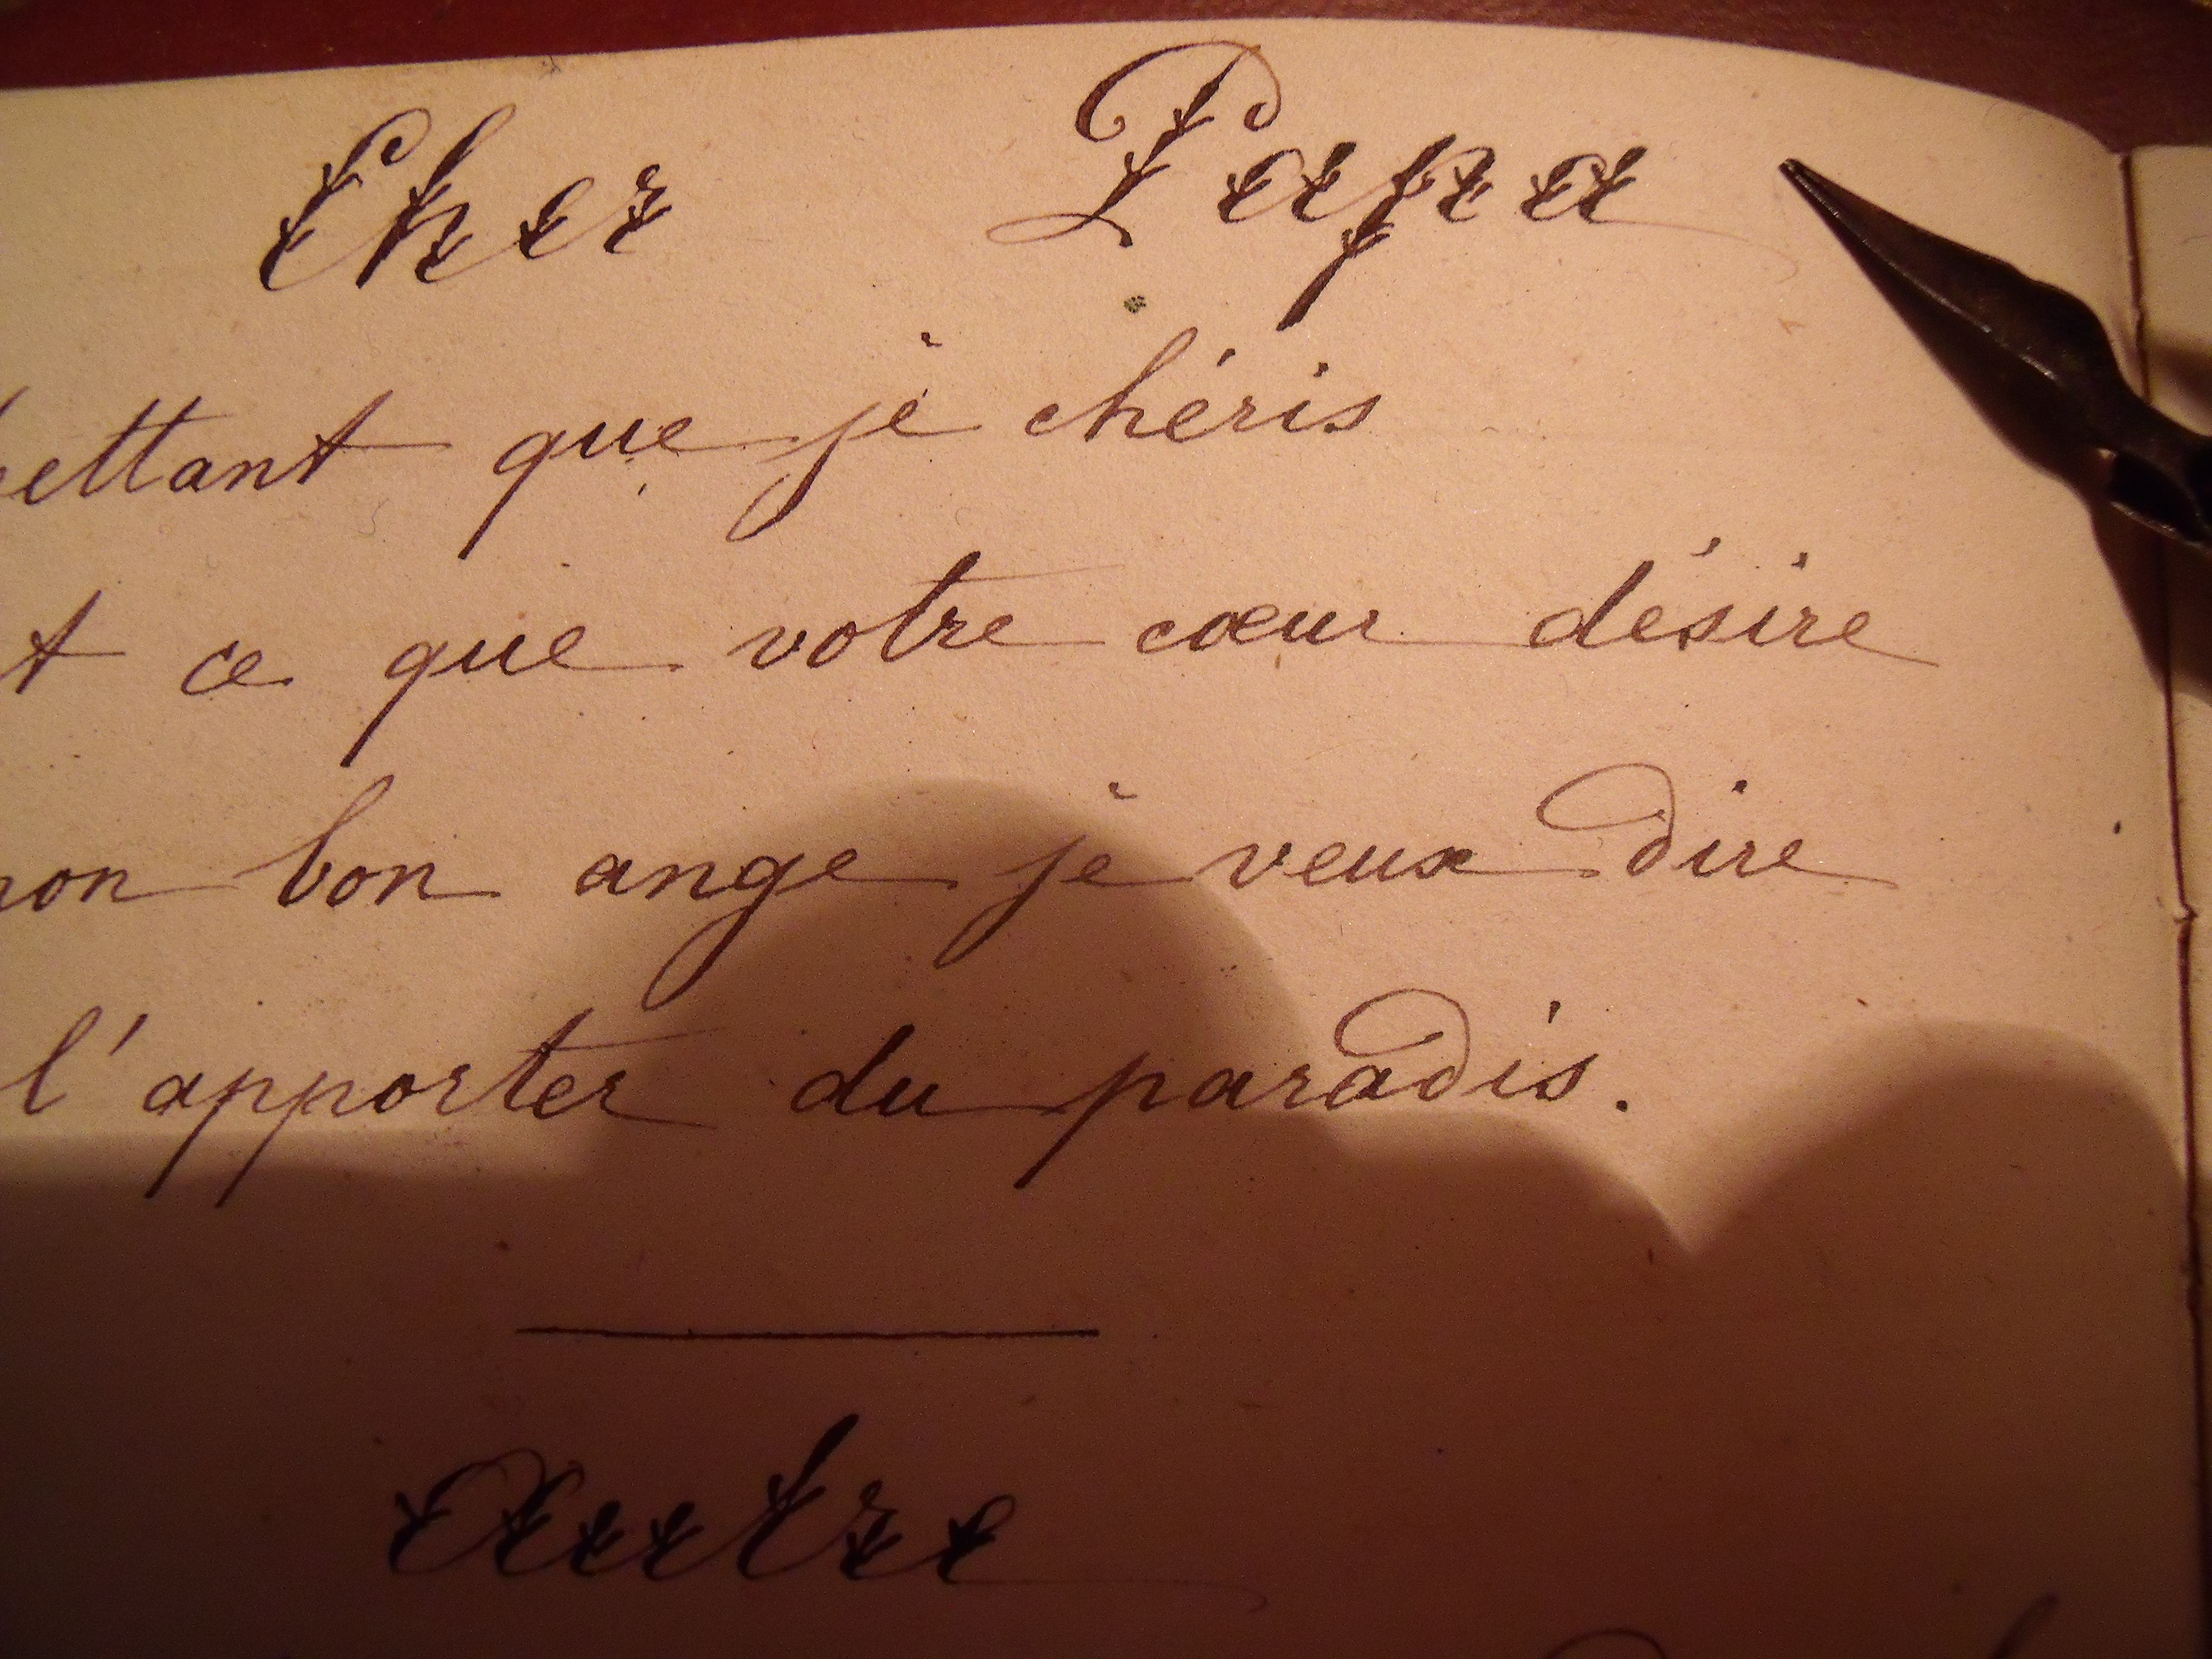 Cher Papa
que je chéris
ce que votre cœur désire
bon ange je veux dire
l'apporter du paradis.
Autre